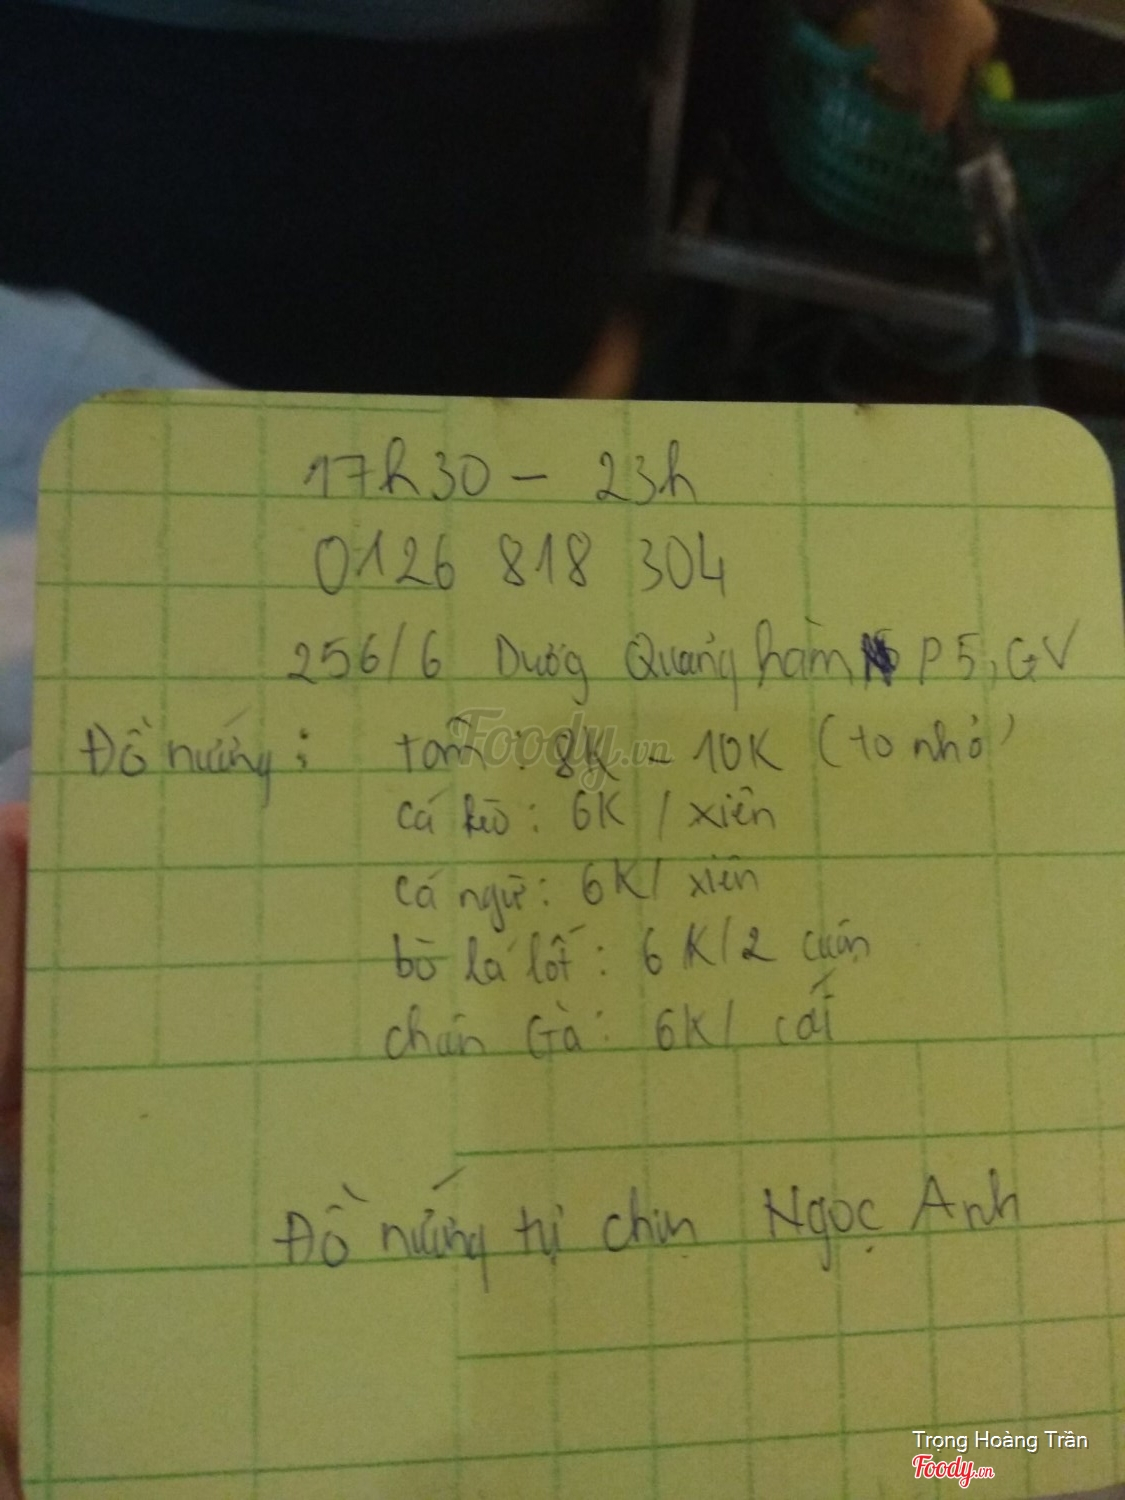 17h30 - 23h
0126 818 304
256/6 Dương Quảng hàm P5, GV
Đồ nướng: tôm: 8K - 10K (to nhỏ)
cá kèo: 6K / xiên
cá ngừ: 6K/ xiên
bò lá lốt: 6K/2 cuốn
chân Gà: 6K/ cái
Đồ nướng tự chọn Ngọc Anh
Foody.vn
Trọng Hoàng Trần
Foody.vn